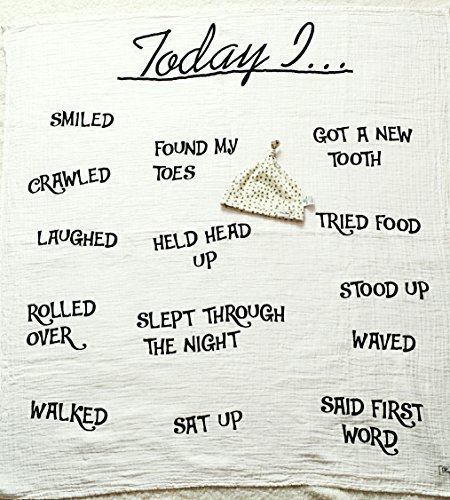 Today I...
SMILED
CRAWLED
LAUGHED
ROLLED
OVER
WALKED
FOUND MY
TOES
HELD HEAD
UP
SLEPT THROUGH
THE NIGHT
SAT UP
GOT A NEW
TOOTH
TRIED FOOD
STOOD UP
WAVED
SAID FIRST
WORD